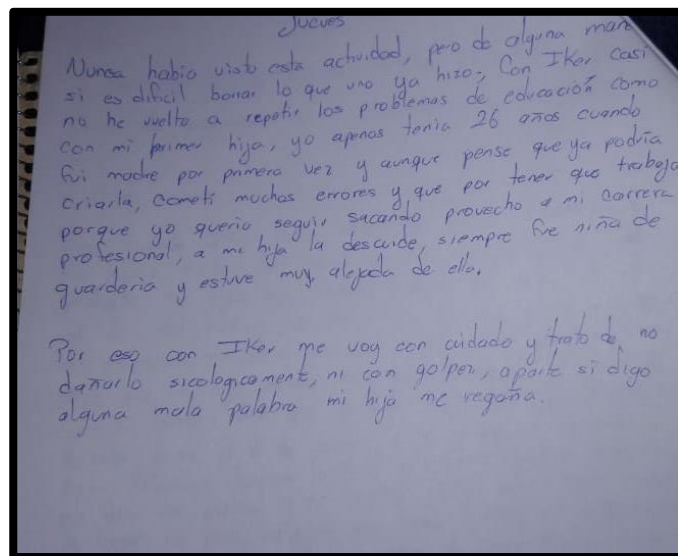 Jueves
Nunca habia visto esta actividad, pero de alguna man
si es dificil borrar lo que uno ya hizo, Con Iker casi
no he vuelto a repetir los problemas de educación como
con mi primer hija, yo apenas tenia 26 años cuando
fui madre por primera vez y aunque pense que ya podria
criarla, cometi muchos errores y que por tener que trabaja
porque yo queria seguir sacando provecho a mi carrera
profesional, a mi hija la descuide, siempre fue niña de
guarderia y estuve muy alejada de ella.
Por eso con Iker me voy con cuidado y trato de no
dañarlo sicologicamente, ni con golpes, aparte si digo
alguna mala palabra mi hija me regaña.